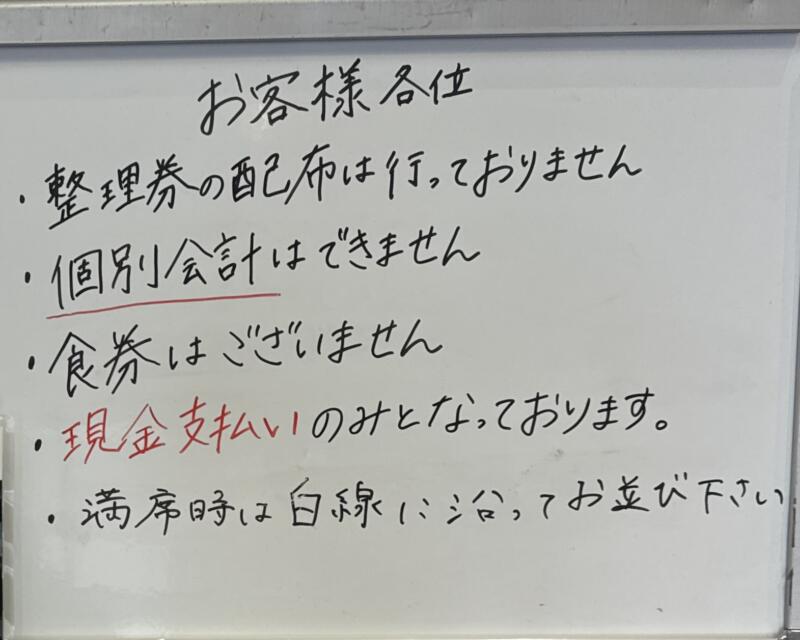 お客様各位
・整理券の配布は行っておりません
・個別会計はできません
・食券はございません
・現金支払いのみとなっております。
・満席時は白線に沿ってお並び下さい